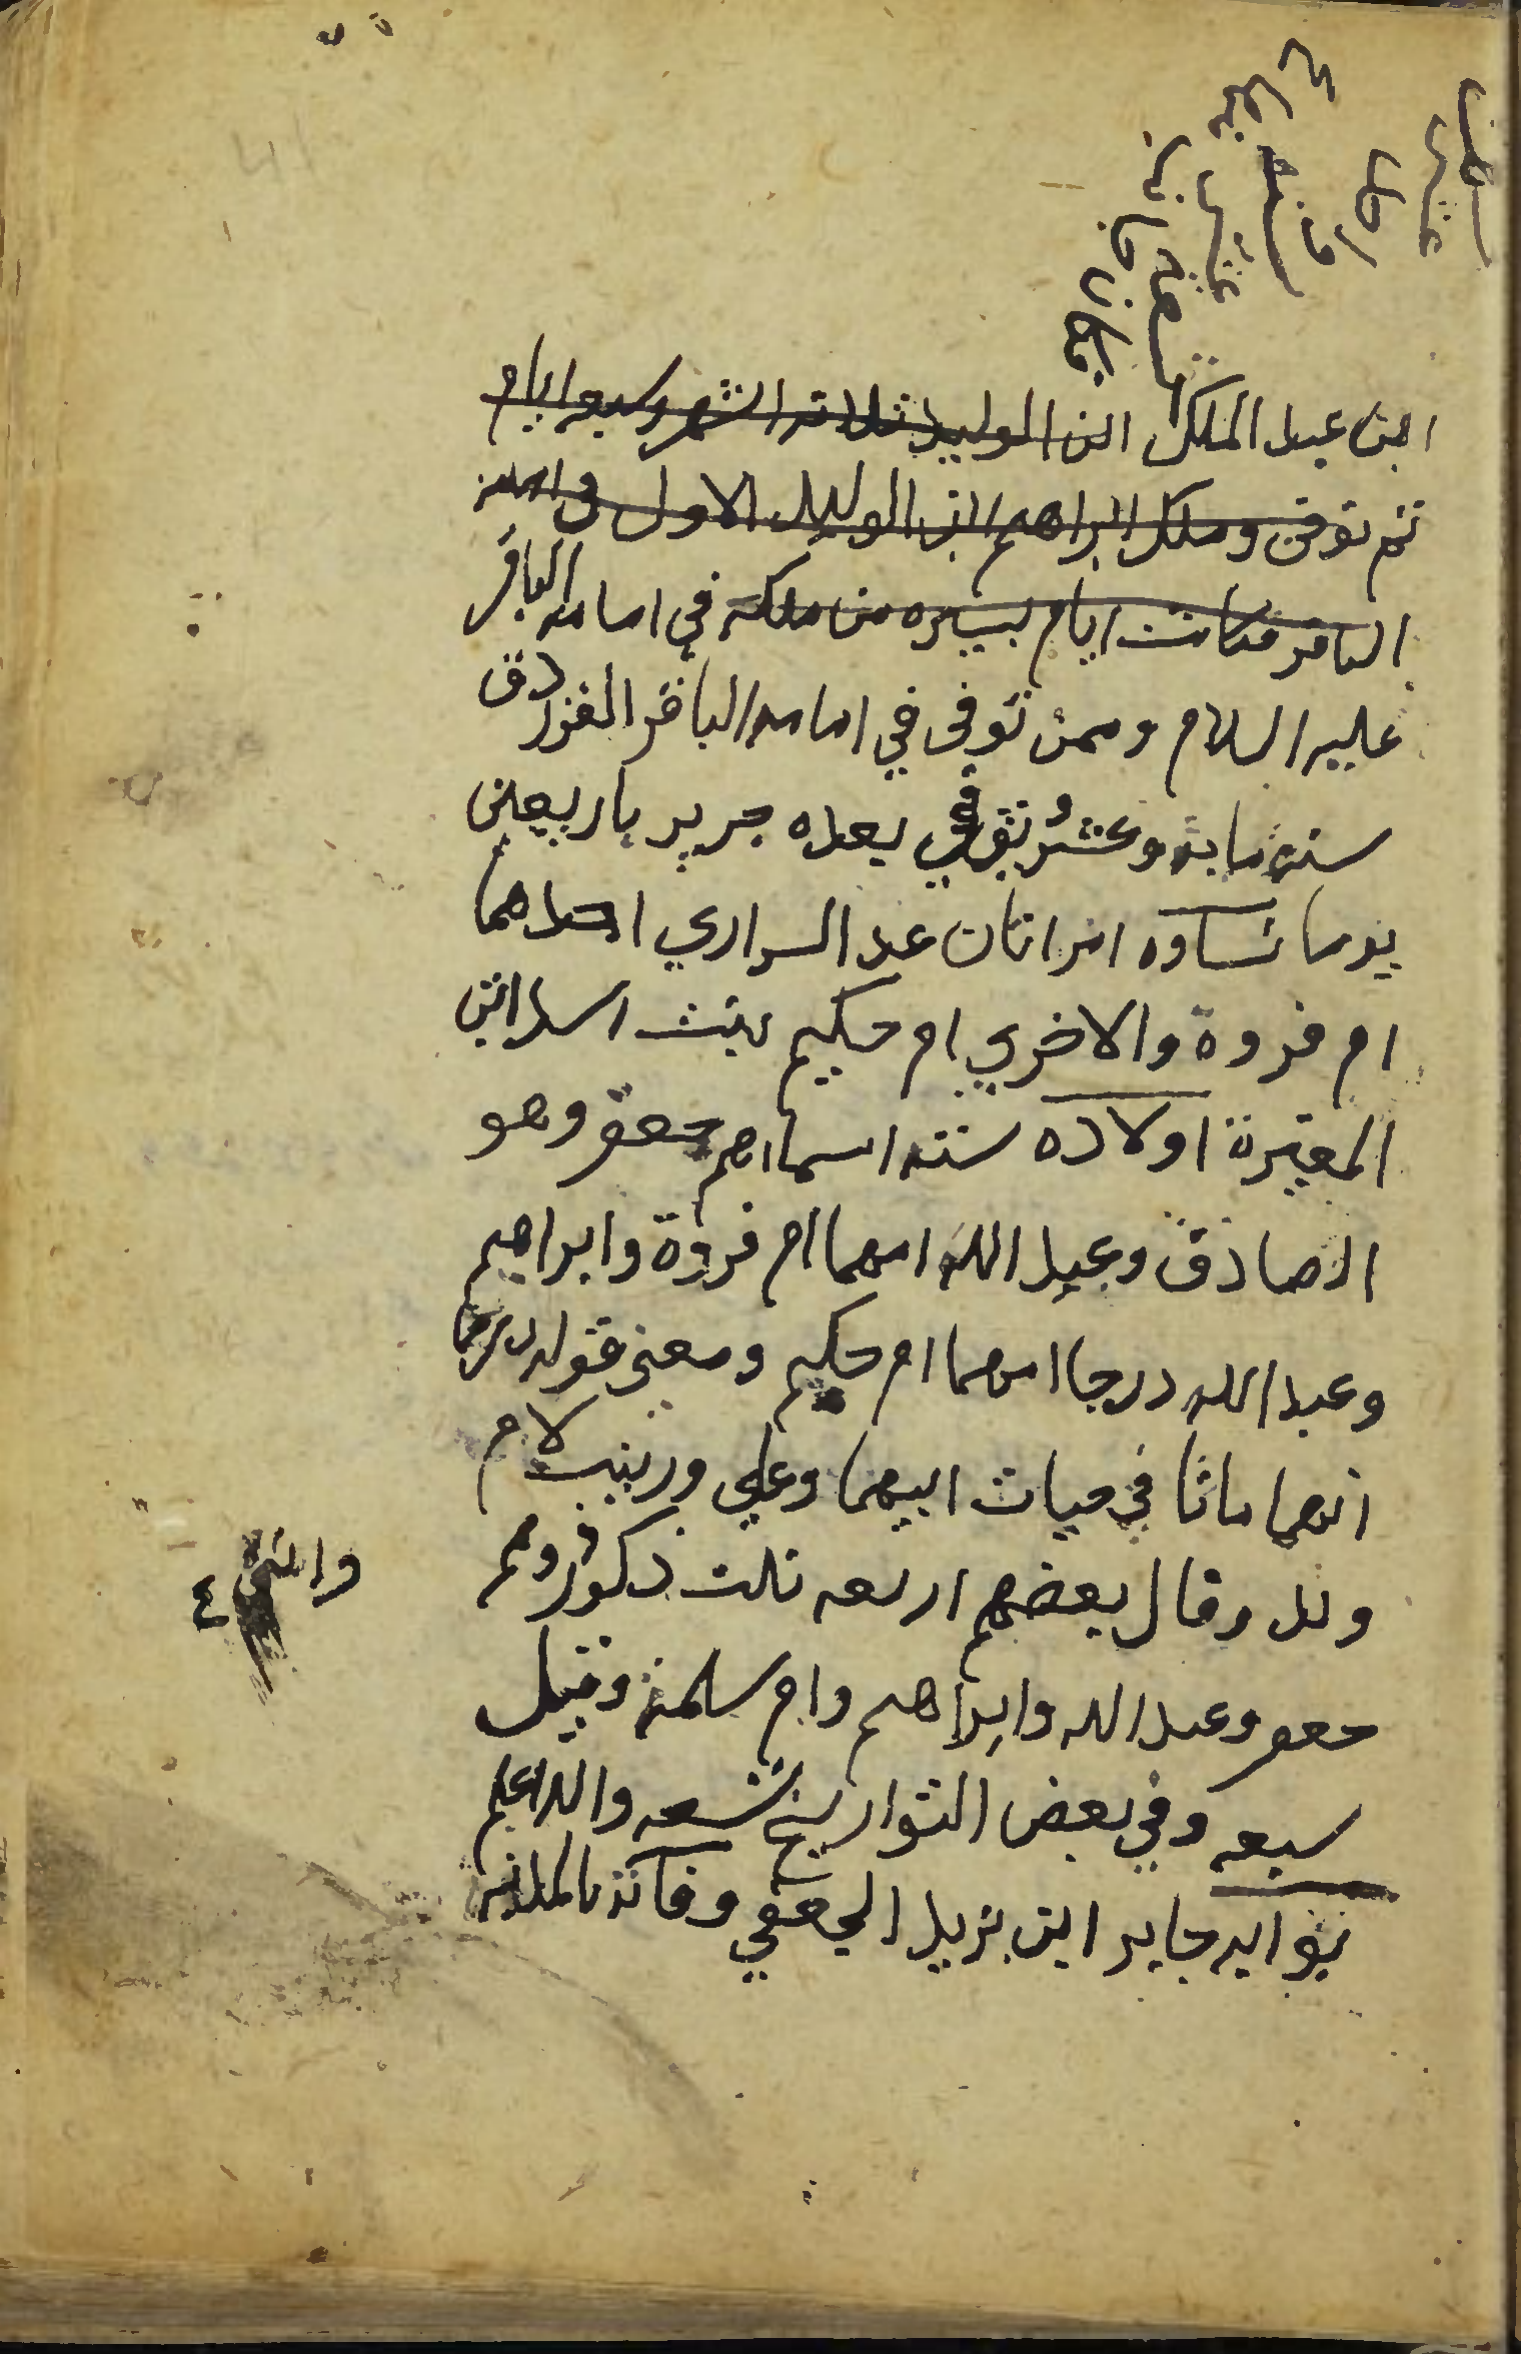 ابن عبد الملك ابن الوليد ثلاثه اشهر وسبعه ايام
ثم توفى وملك ابراهيم ابن الوليد الاول في امامه
الباقر فكانت ايام يسيره من ملكه في امامه الباقر
عليه السلام وممن توفى في امامه الباقر الفرزدق
سنة ماية وعشر توفي بعده جرير باربعين
يوما نساوه امراتان عدا السراري احداهما
ام فروة والاخري ام حكيم بنت اسد ابن
المغيرة اولاده سته اسماهم جعفر وهو
الصادق وعبد الله امهما ام فروة وابراهيم
وعبد الله درجا امهما ام حكيم ومعنى قوله درجا
انهما ماتا في حيات ابيهما وعلي وزينب لام
ولد وقال بعضهم اربعه ثلث ذكور وهم
وانثى ٤
جعفر وعبد الله وابراهيم وام سلمة وقيل
سبعه وفي بعض التواريخ تسعه والله اعلم
بوابه جابر ابن يزيد الجعفي وفاته بالمدينه